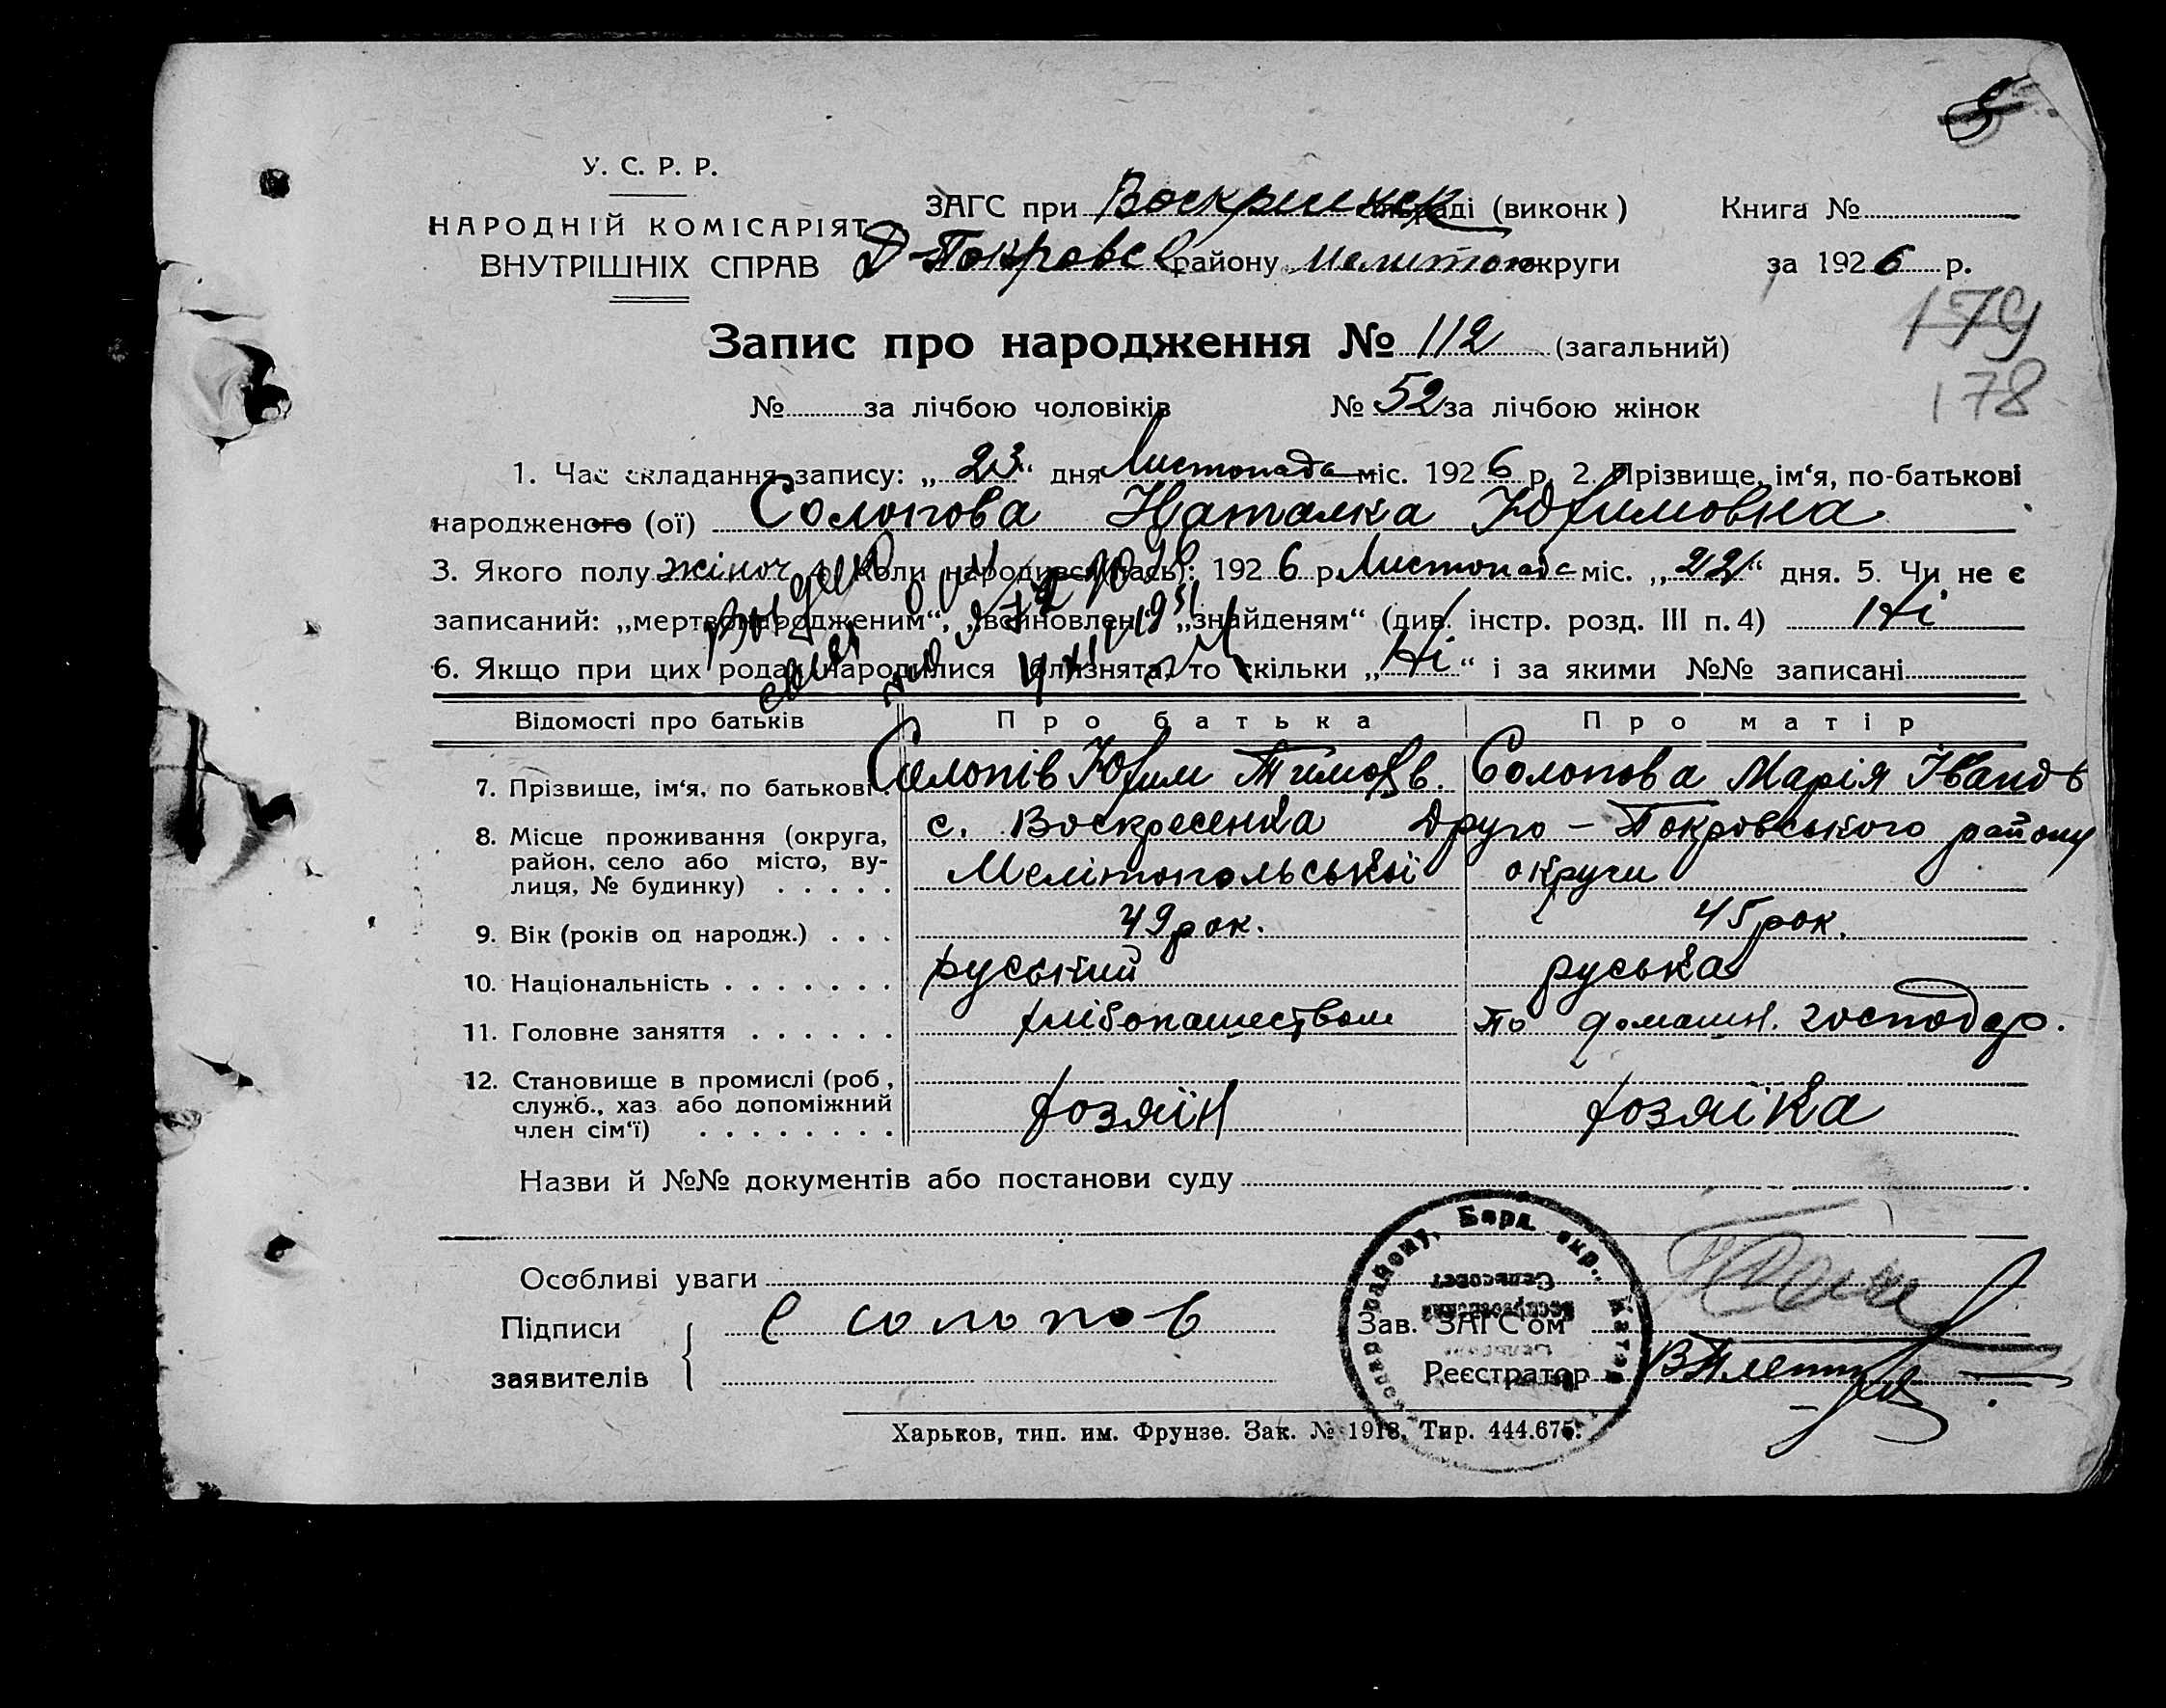 У. С. Р. Р.
НАРОДНІЙ КОМІСАРІЯТ
ВНУТРІШНІХ СПРАВ
ЗАГС при (виконк)
Д-Покровс району Мелитоп округи
Книга №
за 1926 р.
179
178
Запис про народження № 112 (загальний)
№ за лічбою чоловіків № 52 за лічбою жінок
1. Час складання запису: „23“ дня Листопада міс. 1926 р. 2. Прізвище, ім‘я, по-батькові
народженого (ої) Солопова Наталка Юхимовна
3. Якого полу жіноч 4. Коли народився (лась): 1926 р. Листопада міс. „22“ дня. 5. Чи не є
записаний: „мертвонародженим“, „всиновлен“, „знайденям“ (див. інстр. розд. III п. 4) Ні
6. Якщо при цих родах народилися близнята, то скільки „Ні“ і за якими №№ записані
Відомості про батьків Про батька Про матір
7. Прізвище, ім‘я, по батькові Солопів Юхим Тимохв. Солопова Марія Іванов
8. Місце проживання (округа, район, село або місто, вулиця, № будинку)
с. Воскресенка Друго-Покровського району
Мелітопольської округи
9. Вік (років од народж.) 49 рок. 45 рок.
10. Національність руський руська
11. Головне заняття хлібопашеством По домашн. господар.
12. Становище в промислі (роб., служб., хаз. або допоміжний член сім‘ї)
хозяїн хозяїка
Назви й №№ документів або постанови суду
Особливі уваги
Підписи
заявителів
Е солопов
Зав. ЗАГС‘ом
Реєстратор
району, Берд. окр.
Сельсовет
Харьков, тип. им. Фрунзе. Зак. № 1918. Тир. 444.675.